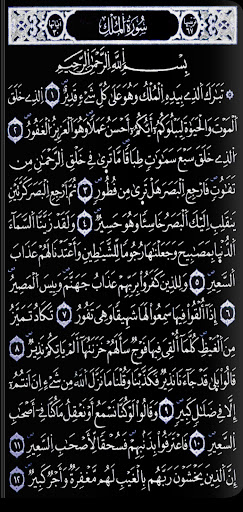 سُورَةُ المُلْكِ
بِسْمِ اللَّهِ الرَّحْمَٰنِ الرَّحِيمِ
تَبَٰرَكَ الَّذِي بِيَدِهِ الْمُلْكُ وَهُوَ عَلَىٰ كُلِّ شَيْءٍ قَدِيرٌ ١ الَّذِي خَلَقَ
الْمَوْتَ وَالْحَيَوٰةَ لِيَبْلُوَكُمْ أَيُّكُمْ أَحْسَنُ عَمَلًا وَهُوَ الْعَزِيزُ الْغَفُورُ ٢
الَّذِي خَلَقَ سَبْعَ سَمَٰوَٰتٍ طِبَاقًا مَّا تَرَىٰ فِي خَلْقِ الرَّحْمَٰنِ مِن
تَفَٰوُتٍ فَارْجِعِ الْبَصَرَ هَلْ تَرَىٰ مِن فُطُورٍ ٣ ثُمَّ ارْجِعِ الْبَصَرَ كَرَّتَيْنِ
يَنقَلِبْ إِلَيْكَ الْبَصَرُ خَاسِئًا وَهُوَ حَسِيرٌ ٤ وَلَقَدْ زَيَّنَّا السَّمَاءَ
الدُّنْيَا بِمَصَٰبِيحَ وَجَعَلْنَٰهَا رُجُومًا لِّلشَّيَٰطِينِ وَأَعْتَدْنَا لَهُمْ عَذَابَ
السَّعِيرِ ٥ وَلِلَّذِينَ كَفَرُوا بِرَبِّهِمْ عَذَابُ جَهَنَّمَ وَبِئْسَ الْمَصِيرُ
٦ إِذَا أُلْقُوا فِيهَا سَمِعُوا لَهَا شَهِيقًا وَهِيَ تَفُورُ ٧ تَكَادُ تَمَيَّزُ
مِنَ الْغَيْظِ كُلَّمَا أُلْقِيَ فِيهَا فَوْجٌ سَأَلَهُمْ خَزَنَتُهَا أَلَمْ يَأْتِكُمْ نَذِيرٌ ٨
قَالُوا بَلَىٰ قَدْ جَاءَنَا نَذِيرٌ فَكَذَّبْنَا وَقُلْنَا مَا نَزَّلَ اللَّهُ مِن شَيْءٍ إِنْ أَنتُمْ
إِلَّا فِي ضَلَٰلٍ كَبِيرٍ ٩ وَقَالُوا لَوْ كُنَّا نَسْمَعُ أَوْ نَعْقِلُ مَا كُنَّا فِي أَصْحَٰبِ
السَّعِيرِ ١٠ فَاعْتَرَفُوا بِذَنبِهِمْ فَسُحْقًا لِّأَصْحَٰبِ السَّعِيرِ ١١
إِنَّ الَّذِينَ يَخْشَوْنَ رَبَّهُم بِالْغَيْبِ لَهُم مَّغْفِرَةٌ وَأَجْرٌ كَبِيرٌ ١٢